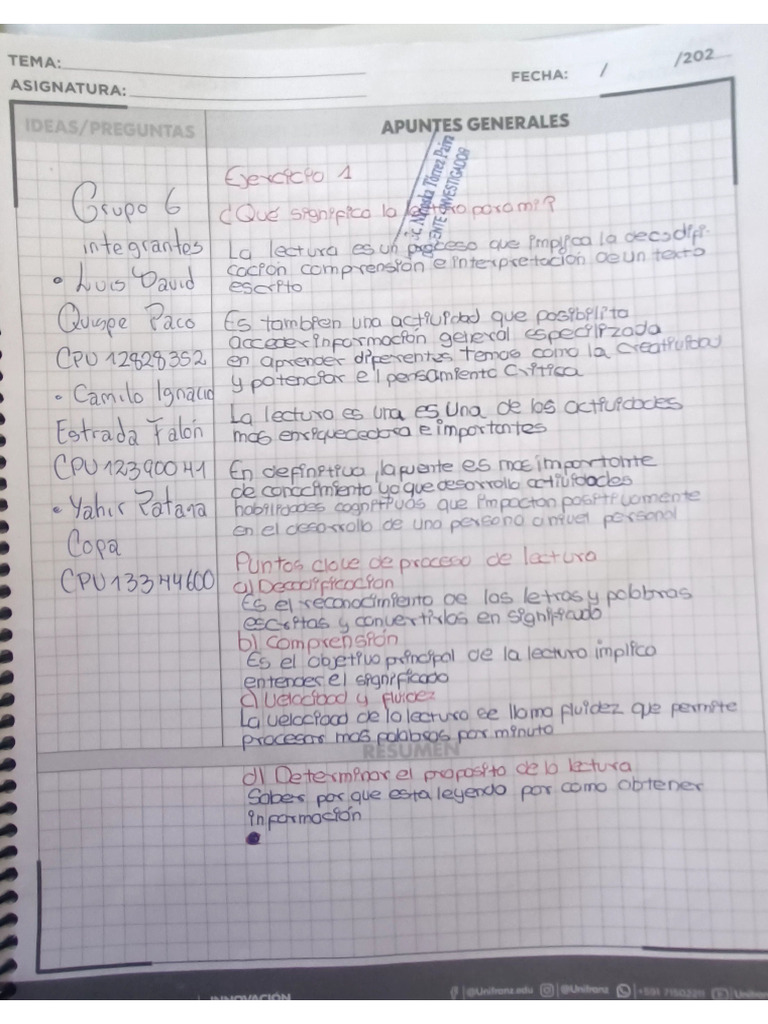 TEMA:
ASIGNATURA:
FECHA: / /202
IDEAS/PREGUNTAS
APUNTES GENERALES
Grupo 6
integrantes
• Luis David
Quispe Paco
CPU 12828352
• Camilo Ignacio
Estrada Falón
CPU 12390041
• Yahir
Copa
CPU 13344600
Ejercicio 1
¿Qué significa la lectura para mi?
La lectura es un proceso que implica la decodifi-
cación comprensión e interpretación de un texto
escrito
Es tambien una actividad que posibilita
acceder información general especilizada
en aprender diferentes temas como la creatividad
y potenciar el pensamiento Critica
La lectura es una es una de las actividades
mas enriquecedora e importantes
En definitiva, la fuente es mas importante
de conocimiento ya que desarrolla actividades
habilidades cognitivas que impactan positivamente
en el desarrollo de una persona a nivel personal
Puntos clave de proceso de lectura
a) Decodificacion
Es el reconocimiento de las letras y palabras
escritas y convertirlas en significado
b) comprensión
Es el objetivo principal de la lectura implica
entender el significado
c) velocidad y fluidez
La velocidad de la lectura se llama fluidez que permite
procesar mas palabras por minuto
RESUMEN
d) Determinar el proposito de la lectura
Saber por que esta leyendo por como obtener
información
INNOVACIÓN
@Unifranz.edu @Unifranz